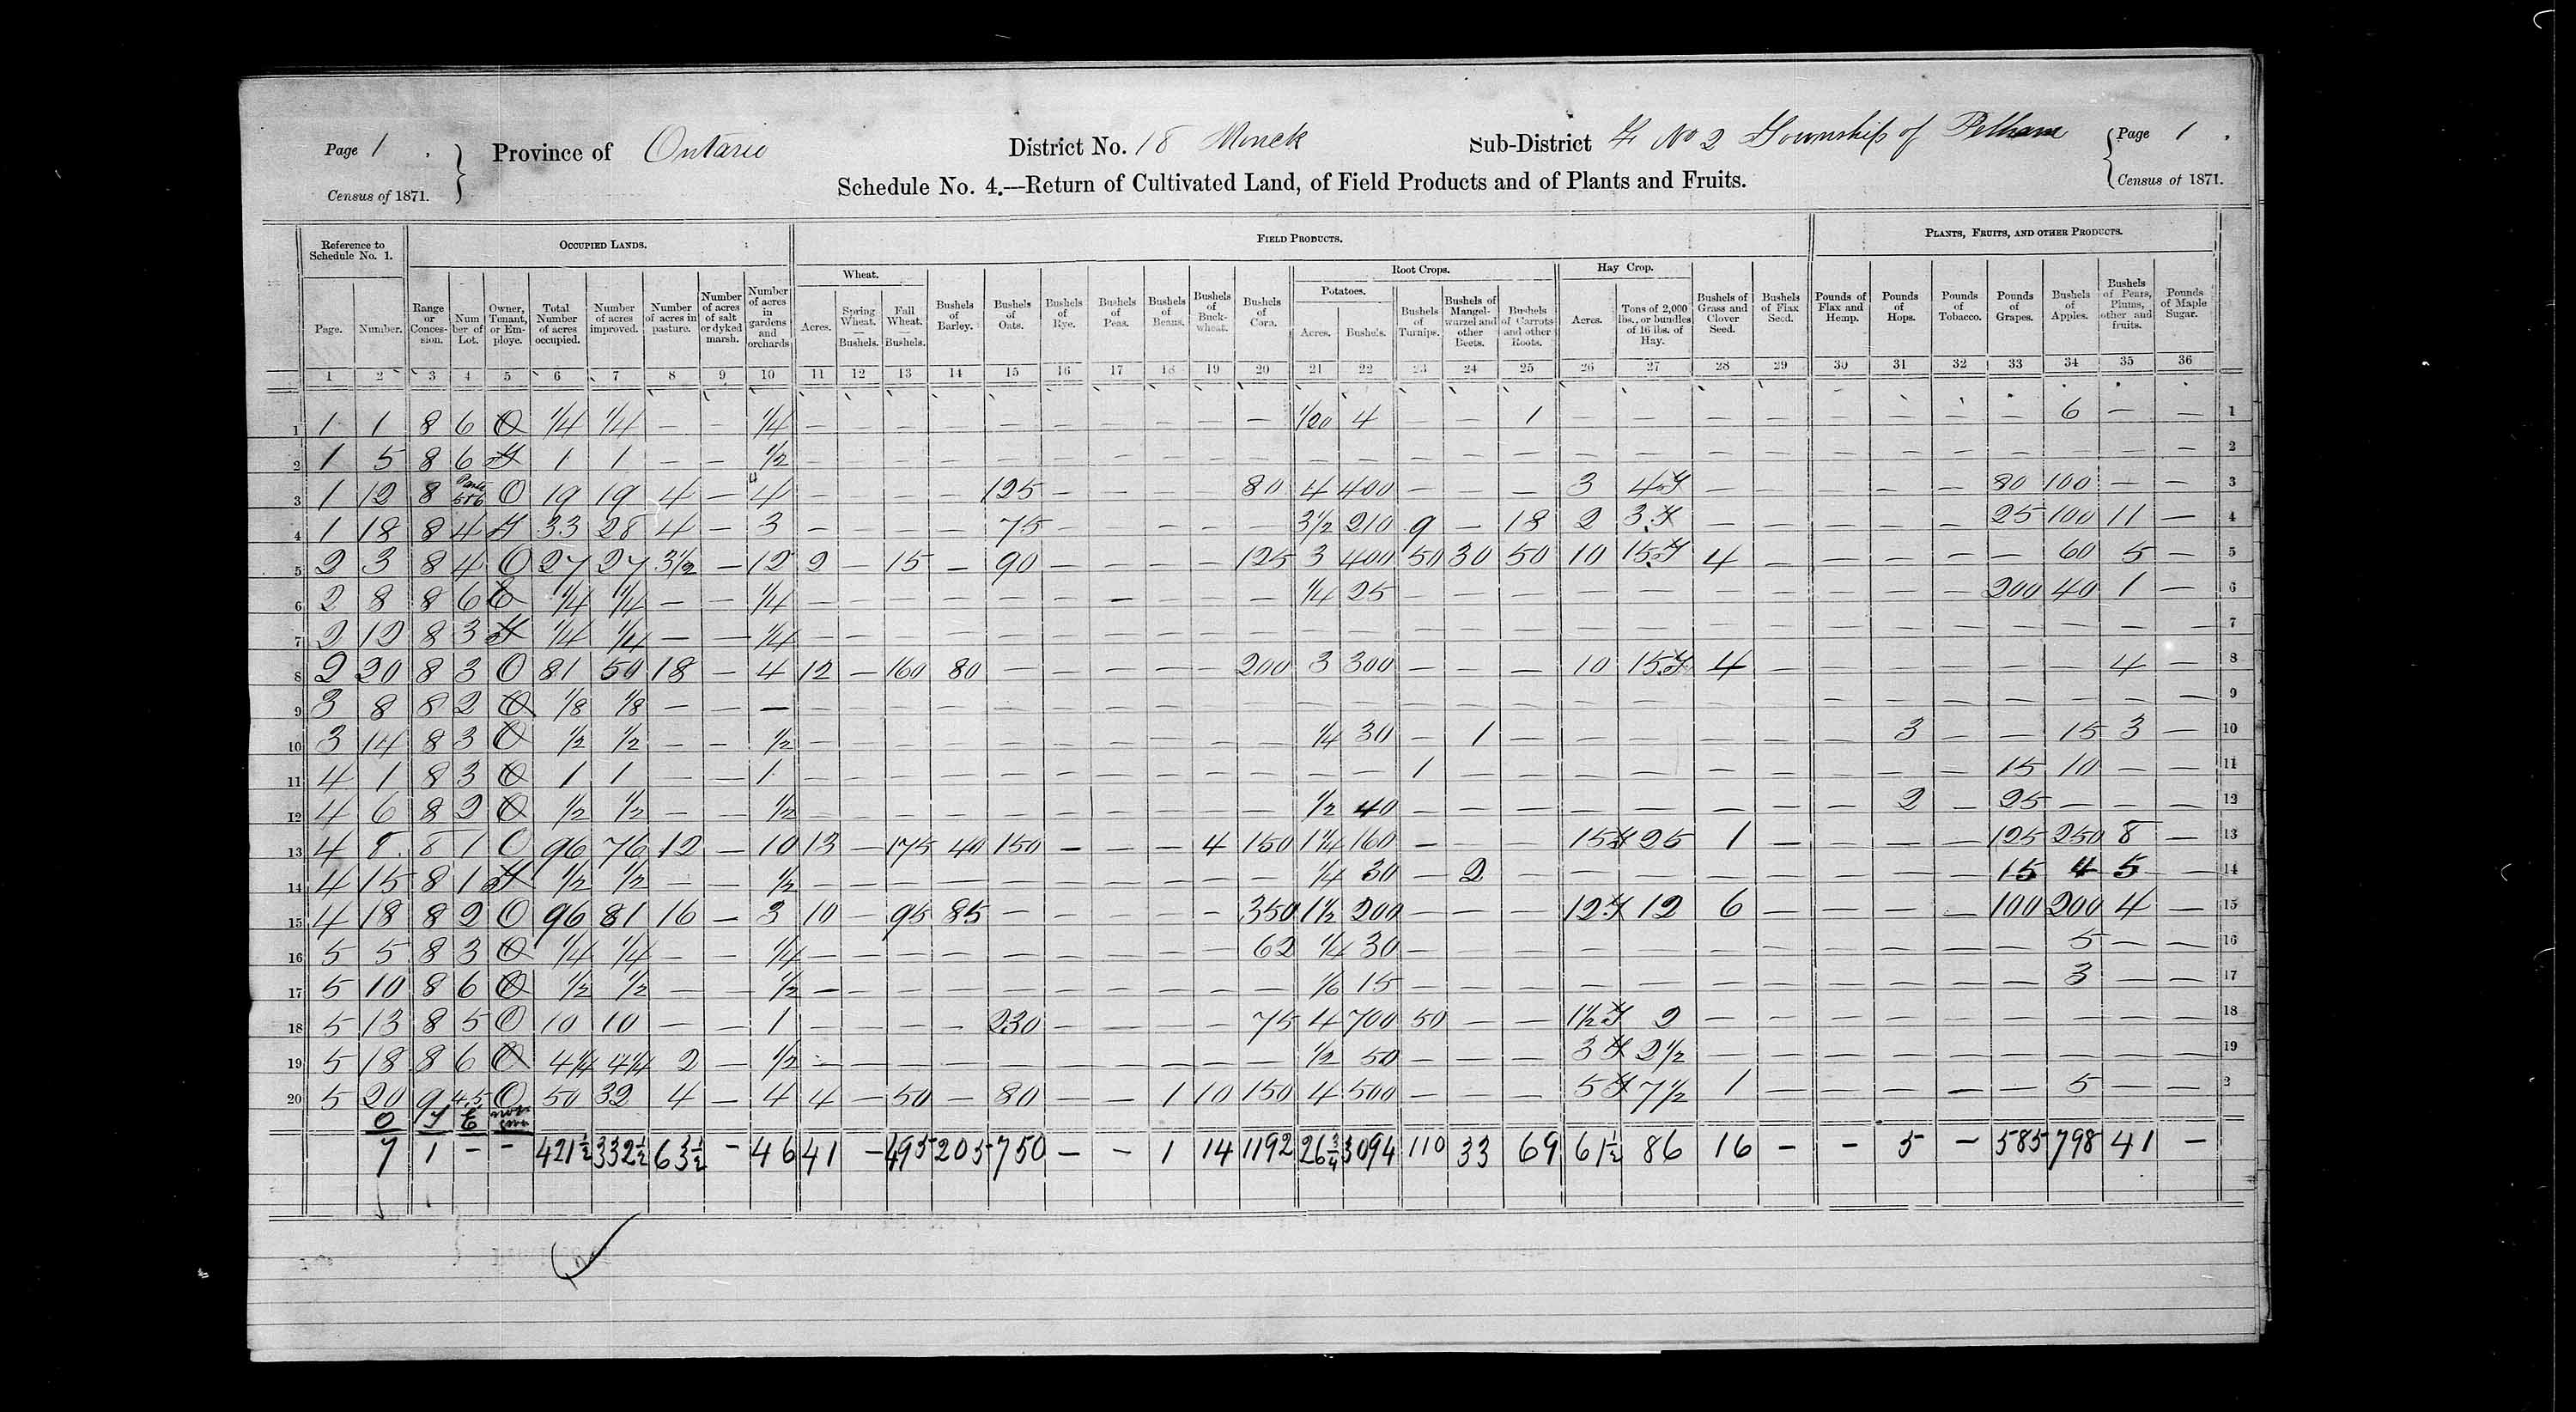 Page 1 . Province of Ontario District No. 18 Monck Sub-District F No 2 Township of Pelham Page 1 .
Census of 1871. Schedule No. 4.—Return of Cultivated Land, of Field Products and of Plants and Fruits. Census of 1871.
Reference to Schedule No. 1. OCCUPIED LANDS. FIELD PRODUCTS. PLANTS, FRUITS, AND OTHER PRODUCTS.
Wheat. Root Crops. Hay Crop.
Potatoes.
Page. Number. Range or Conces-sion. Num ber of Lot. Owner, Tenant, or Em-ploye. Total Number of acres occupied. Number of acres improved. Number of acres in pasture. Number of acres of salt or dyked marsh. Number of acres in gardens and orchards Acres. Spring Wheat. — Bushels. Fall Wheat. — Bushels. Bushels of Barley. Bushels of Oats. Bushels of Rye. Bushels of Peas. Bushels of Beans. Bushels of Buck-wheat. Bushels of Corn. Acres. Bushels. Bushels of Turnips. Bushels of Mangel-wurzel and other Beets. Bushels of Carrots and other Roots. Acres. Tons of 2,000 lbs., or bundles of 16 lbs. of Hay. Bushels of Grass and Clover Seed. Bushels of Flax Seed. Pounds of Flax and Hemp. Pounds of Hops. Pounds of Tobacco. Pounds of Grapes. Bushels of Apples. Bushels of Pears, Plums, other and fruits. Pounds of Maple Sugar.
1 2 3 4 5 6 7 8 9 10 11 12 13 14 15 16 17 18 19 20 21 22 23 24 25 26 27 28 29 30 31 32 33 34 35 36
1 1 1 8 6 O 1/4 1/4 — — 1/4 — — — — — — — — — — 1/20 4 — — 1 — — — — — — — — 6 — — 1
2 1 5 8 6 T 1 1 — — 1/2 — — — — — — — — — — — — — — — — — — — — — — — — — — 2
3 1 12 8 Parts 5 & 6 O 19 19 4 — 4 — — — — 125 — — — — 80 4 400 — — — 3 4 T — — — — — 80 100 — — 3
4 1 18 8 4 T 33 28 4 — 3 — — — — 75 — — — — — 3 1/2 210 9 — 18 2 3 T — — — — — 25 100 11 — 4
5 2 3 8 4 O 27 27 3 1/2 — 12 2 — 15 — 90 — — — — 125 3 400 50 30 50 10 15 T 4 — — — — — 60 5 — 5
6 2 8 8 6 E 1/4 1/4 — — 1/4 — — — — — — — — — — 1/4 25 — — — — — — — — — — 200 40 1 — 6
7 2 12 8 3 T 1/4 1/4 — — 1/4 — — — — — — — — — — — — — — — — — — — — — — — — — — 7
8 2 20 8 3 O 81 50 18 — 4 12 — 160 80 — — — — — 200 3 300 — — — 10 15 T 4 — — — — — — 4 — 8
9 3 8 8 2 O 1/8 1/8 — — — — — — — — — — — — — — — — — — — — — — — — — — — — — 9
10 3 14 8 3 O 1/2 1/2 — — 1/2 — — — — — — — — — — 1/4 30 — 1 — — — — — — 3 — — 15 3 — 10
11 4 1 8 3 O 1 1 — — 1 — — — — — — — — — — — — 1 — — — — — — — — — 15 10 — — 11
12 4 6 8 2 O 1/2 1/2 — — 1/2 — — — — — — — — — — 1/2 40 — — — — — — — — 2 — 25 — — — 12
13 4 8 8 1 O 96 76 12 — 10 13 — 175 40 150 — — — 4 150 1 1/4 160 — — — 15 T 25 1 — — — — 125 250 8 — 13
14 4 15 8 1 T 1/2 1/2 — — 1/2 — — — — — — — — — — 1/4 30 — 2 — — — — — — — — 15 4 5 — 14
15 4 18 8 2 O 96 81 16 — 3 10 — 95 85 — — — — — 350 1 1/2 200 — — — 12 T 12 6 — — — — 100 200 4 — 15
16 5 5 8 3 O 1/4 1/4 — — 1/4 — — — — — — — — — 62 1/4 30 — — — — — — — — — — — 5 — — 16
17 5 10 8 6 O 1/2 1/2 — — 1/2 — — — — — — — — — — 1/6 15 — — — — — — — — — — — 3 — — 17
18 5 13 8 5 O 10 10 — — 1 — — — — 230 — — — — 75 4 700 50 — — 1 1/2 T 2 — — — — — — — — — 18
19 5 18 8 6 O 4 1/4 4 1/4 2 — 1/2 — — — — — — — — — — 1/2 50 — — — 3 T 2 1/2 — — — — — — — — — 19
20 5 20 9 4, 5 O 50 32 4 — 4 4 — 50 — 80 — — 1 10 150 4 500 — — — 5 T 7 1/2 1 — — — — — 5 — — 2
O T E
7 1 - - 421 1/2 332 1/2 63 1/2 - 46 41 - 495 205 750 - - 1 14 1192 26 3/4 3094 110 33 69 61 1/2 86 16 - - 5 - 585 798 41 -